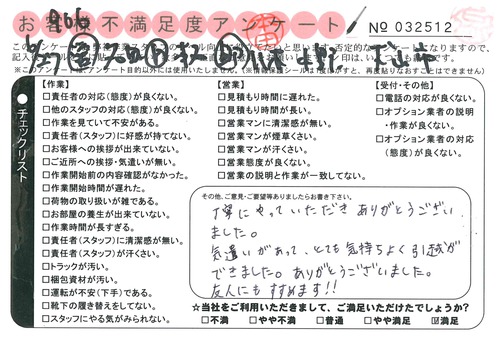 966
お客様不満足度アンケート
No 032512
【作業】
□責任者の対応(態度)が良くない。
□他のスタッフの対応(態度)が良くない。
□作業を見ていて不安がある。
□責任者(スタッフ)に好感が持てない。
□お客様への挨拶が出来ていない。
□ご近所への挨拶・気遣いが無い。
□作業開始前の内容確認がなかった。
□作業開始時間が遅れた。
□荷物の取り扱いが雑である。
□お部屋の養生が出来ていない。
□作業時間が長すぎる。
□責任者(スタッフ)に清潔感が無い。
□責任者(スタッフ)が汗くさい。
□トラックが汚い。
□梱包資材が汚い。
□運転が不安(下手)である。
□靴下の履き替えをしてない。
□スタッフにやる気がみられない。
【営業】
□見積もり時間に遅れた。
□見積もり時間が長い。
□営業マンに清潔感が無い。
□営業マンが煙草くさい。
□営業マンが汗くさい。
□営業態度が良くない。
□営業の説明と作業が一致してない。
【受付・その他】
□電話の対応が良くない。
□オプション業者の説明
・作業が良くない。
□オプション業者の対応
(態度)が良くない。
チェックリスト
その他、ご意見・ご要望等ありましたらお書き下さい。
丁寧にやっていただき ありがとうござい
ました。
気遣いがあって、とても気持ちよく引越が
できました。ありがとうございました。
友人にもすすめます!!
☆当社をご利用いただきまして、ご満足いただけたでしょうか?
□不満 □やや不満 □普通 □やや満足 ☑満足